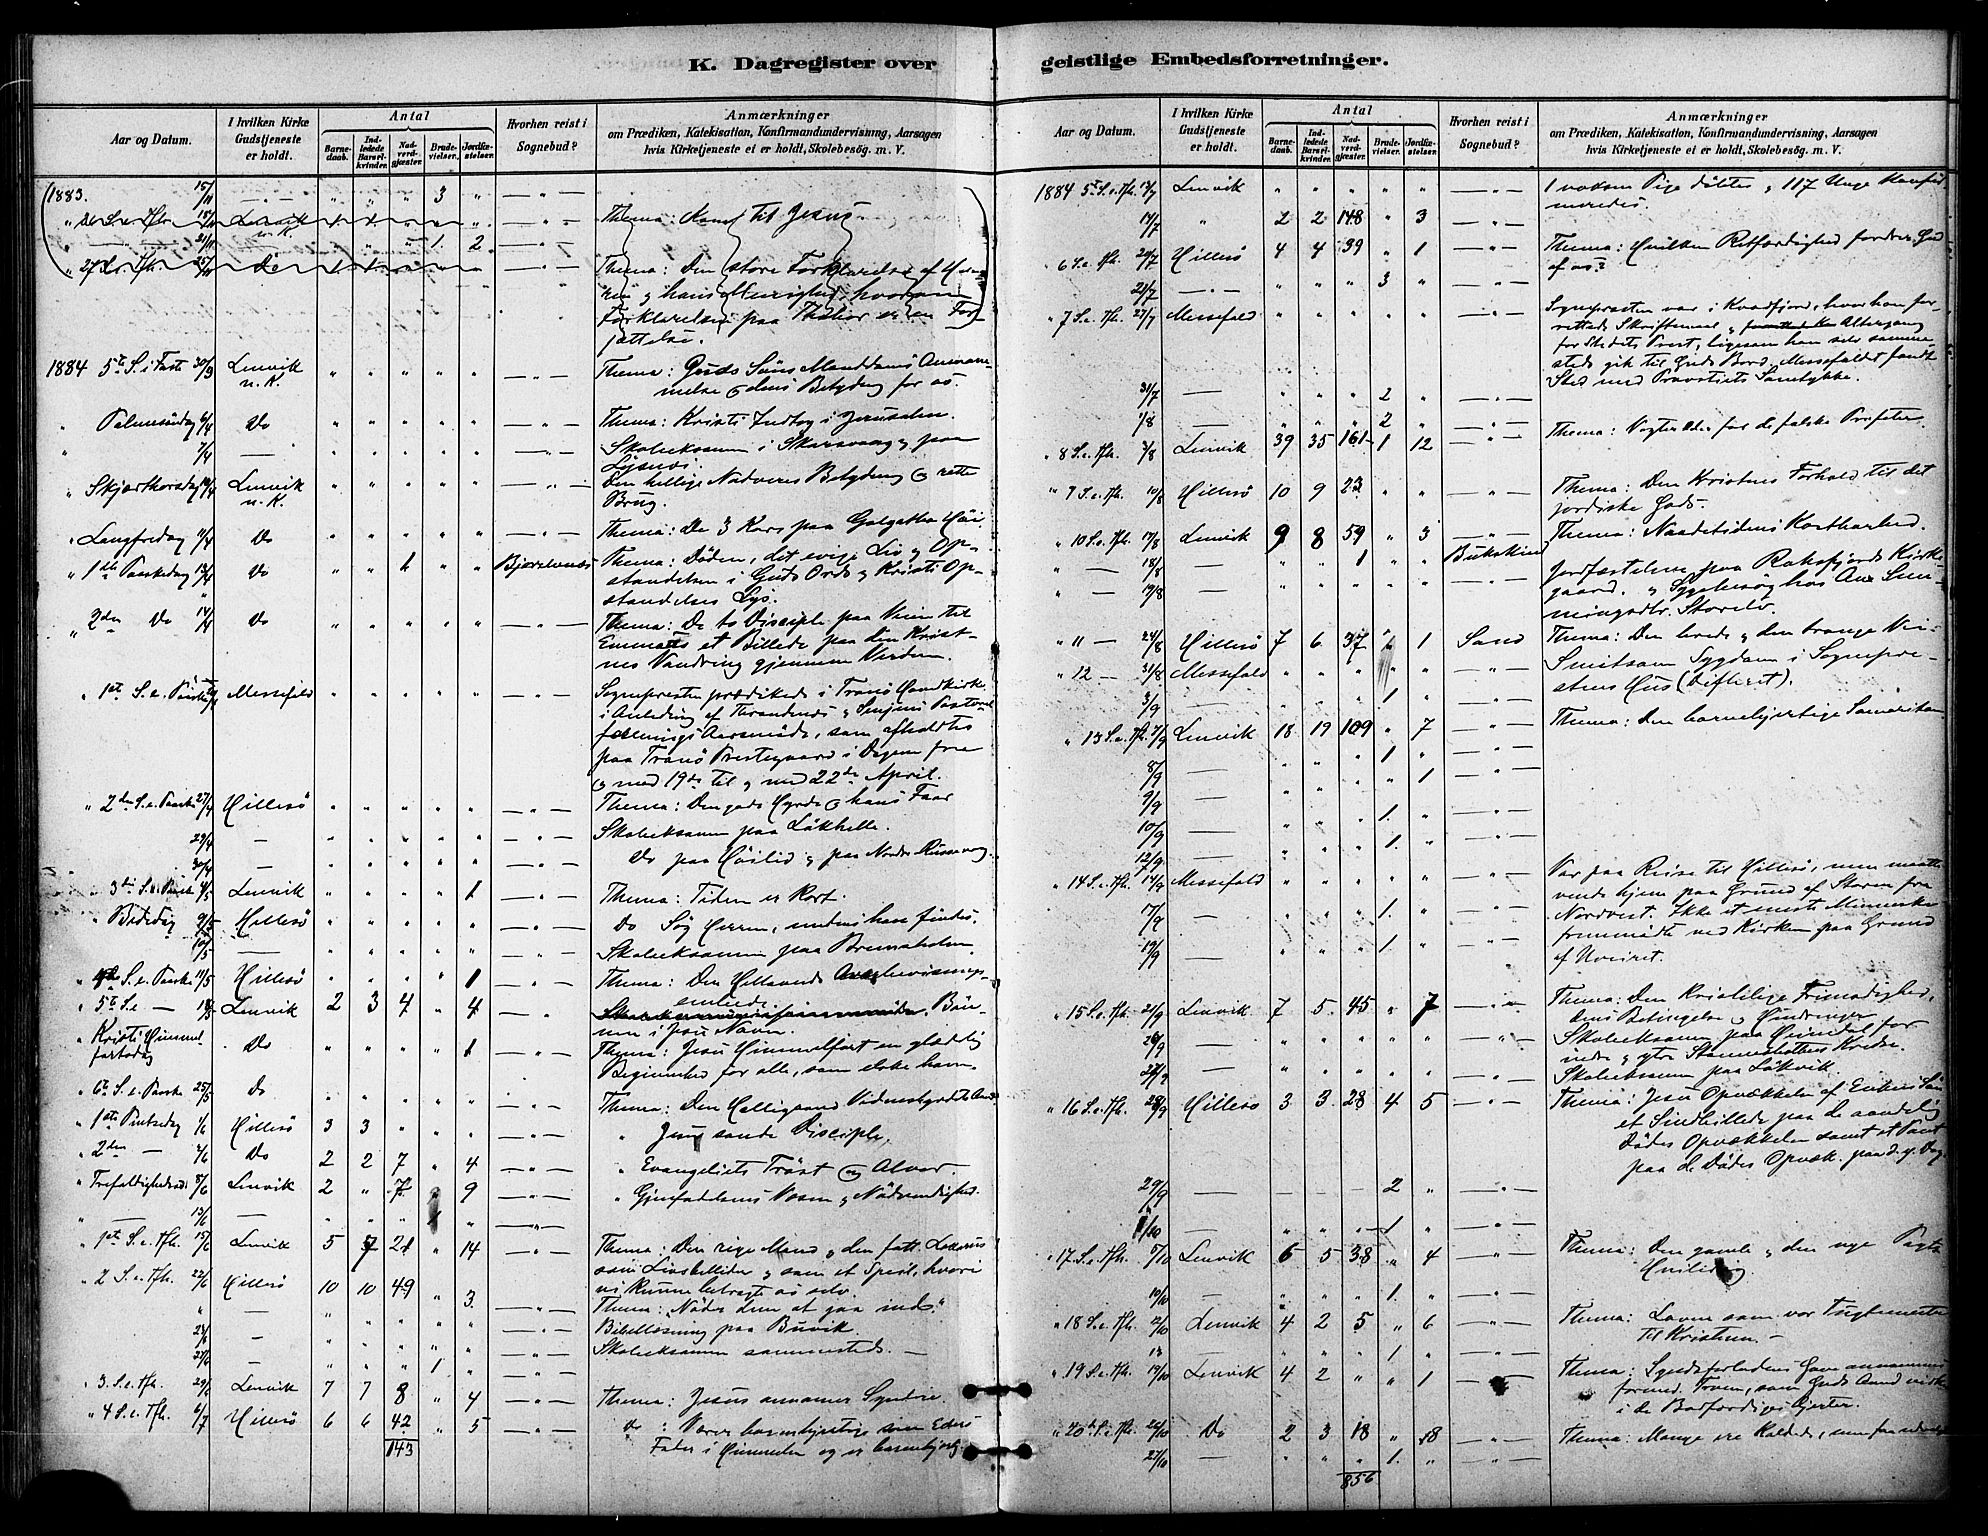 K. Dagregister over geistlige Embedsforretninger.
Aar og Datum. I hvilken Kirke Gudstjeneste er holdt. Antal Barnedaab. Indledede Barselkvinder. Nadverdgjæster. Brudevielser. Jordfæstelser. Hvorhen reist i Sognebud? Anmærkninger om Prædiken, Katekisation, Konfirmandundervisning, Aarsagen hvis Kirketjeneste ei er holdt, Skolebesög. m. V.
1883. 15/11 — " — " " " 3 " — " —
Lenvik n. K. Thema: Kom til Jesus.
21/11 " " " 1. 2. — " —
" 27 S. e. Tfh. 25/11 Do Thema: Den store Forklarelse af Herren
og hans Menighed, hvorom
Forklarelsen paa Thabor er en For-
jættelse.
1884 5te S. i Faste 30/3 Lenvik n. K. " " " " " — " — Thema: Guds Søns Manddoms Annam-
melse og dens Betydning for os.
" Palmesöndag 6/4 Do " " " " " — " — Thema: Kristi Indtog i Jerusalem.
" 7/4 — " " " " " — " — Skoleeksamen i Skarsvaag og paa
Lysnes.
" Skjærthorsdag 10/4 Lenvik n. K. " " " " " — " — Den hellige Nadveres Betydning og rette
Brug.
" Langfredag 11/4 Do " " " " " — " — Thema: De 3 Kors paa Golgatha Höi.
" 1ste Paaskedag 13/4 Do " " " " Bjorelvnes Thema: Döden, det evige Liv og Op-
standelsen i Guds Ord og Kristi Op-
standelses Lys.
" 2den Do 14/4 Do " " " " " — " — Thema: De to Disciple paa Veien til
Emmaus et Billede paa den Krist-
nes Vandring gjennem Verden.
" 1ste S. e. Paaske Messefald " " " " " — " — Sognepresten prædikede i Tranö Hovedkirke
i Anledning af Throndenes og Senjens Pastoral-
forenings Aarsmöde, som afholdtes
paa Tranö Prestegaard i Dagene fra
og med 19de til og med 22de April.
" 2den S. e. Paaske 27/4 Hillesö " " " " " — " — Thema: Den gode Hyrde og hans Faar
29/4 — " " " " " — " — Skoleeksamen paa Läkhelle.
30/4 — " " " " " — " — Do paa Höilid og paa Nordre Russevaag.
" 3die S. e. Paaske 4/5 Lenvik " " " " 1 — " — Thema: Tiden er kort.
" Bededag 9/5 Hillesö " " " " " — " — Do Søg Herren, medens han findes.
10/5 — " " " " " — " — Skoleeksamen paa Bremnholmen
" 4de S. e. Paaske 11/5 Hillesö " " " " 1 — " — Thema: Den Helligaands Overbevisnings-
embede.
" 5te S. e — 18/5 Lenvik 2 3 4 " 4 — " Bön-
nen i Jesu Navn.
" Kristi Himmel-
fartsdag Do " " " " 1 — " — Thema: Jesu Himmelfart en glædelig
Begivenhed for alle, som elske ham.
" 6te S. e. Paaske 25/5 Do " " " " " — " — Thema: Den Helligaand Vidnesbyrdets Aand.
" 1ste Pintsedag 1/6 Hillesö 3 3 " " " — " — " Jesu sande Disciple.
" 2den — 2/6 Do 2 2 7 " 4 — " — " Evangeliets Tröst og Alvor.
" Trefoldighedssönd. 8/6 Lenvik 2 " 7 " 9 — " — " Gjenfødelsens Væsen og Nödvendighed.
" — 13/6 — " " " " — " —
" 1ste S. e. Tfh. 15/6 Lenvik 5 7 21 " 14 — " — Thema: Den rige Mand og den fatt. Lazarus
som Livsbilleder og som et Speil, hvori
vi kunne betragte os selv.
" 2 S. e. Tfh. 22/6 Hillesö 10 10 49 " 3. — " — Thema: "Nöder dem at gaa ind".
" — " " " " " — " — Bibellæsning paa Buvik
— " " " " " — " — Skoleeksamen sammesteds. —
— " " " 1 " — " —
" 3. S. e. Tfh. 29/6 Lenvik 7 7 8 " 4 — " — Thema: Jesus annamer Syndere.
" 4 S. e. Tfh. 6/7 Hillesö 6 6 42 " 5 — " — do Værer barmhjertige som Eders
143 Fader i Himmelen og er barmhjertig
Aar og Datum. I hvilken Kirke Gudstjeneste er holdt. Antal Barnedaab. Indledede Barselkvinder. Nadverdgjæster. Brudevielser. Jordfæstelser. Hvorhen reist i Sognebud? Anmærkninger om Prædiken, Katekisation, Konfirmandundervisning, Aarsagen hvis Kirketjeneste ei er holdt, Skolebesög. m. V.
1884 5te S. e. Tfh. 13/7 Lenvik " " " " " — " — 1 voksen Pige döbtes og 117 Unge konfir-
meredes.
17/7 " 2 2 148 " 3 — " —
" 6 S. e. Tfh. 20/7 Hillesö 4 4 39 " 1 — " — Thema: Hvilken Retfærdighed fordrer Gud
af os?
21/7 — " — " " " 3 " — " —
" 7 S. e. Tfh. 27/7 Messefald " " " " " — " — Sognepresten var i Kvædfjord, hvor han for-
rettede Skriftemaal og Altergang
for Stedets Prest, ligesom han selv samme-
steds gik til Guds Bord. Messefaldet fandt
Sted med Provstiets Samtykke.
31/7 — " " " 2 " — " —
1/8 — " " " 2 " — " —
" 8 S. e. Tfh. 3/8 Lenvik 39 35 161 1 12 — " — Thema: Vogter Eder for de falske Profeter.
" 9 S. e. Tfh. 10/8 Hillesö 10 9 23 " " — " — Thema: Den Kristnes Forhold til det
jordiske Gods.
" 10 S. e. Tfh. 17/8 Lenvik 9 8 59 " 3 — " — Thema: Naadetidens Kostbarhed.
" — 18/8 — " " 1 " " Bukskind
" — 19/8 — " " " " " — " — Jordfæstelse paa Roksfjords Kirke-
gaard. og Sygebesög hos
Storelv.
" 11 — 24/8 Hillesö 7 6 37 " 1 Sand Thema: Den brede og den trange Vei.
" 12 — 31/8 Messefald " " " " " — " — Smitsom Sygdom i Sognepre-
stens Hus (Difterit).
3/9 — " " " 1 " — " —
" 13 S. e. Tfh. 7/9 Lenvik 18 19 109 " 7 — " — Thema: Den barmhjertige Samaritan
8/9 — " " " 1 " — " —
9/9 — " " " " 1 — " —
10/9 — " " " 1. " — " —
12/9 — " " " 1. " — " —
" 14 S. e. Tfh. 14/9 Messefald " " " " " — " — Var paa Reise til Hillesö, men maatte
vende hjem paa Grund af Storm fra
17/9 — " " " 1. " — " — Nordvest. Ikke et eneste Menneske
fremmödte ved Kirken paa Grund
19/9 — " " " 1. " — " — af Uveiret.
" 15 S. e. Tfh. 21/9 Lenvik 7 5 45 " 7 — " — Thema: Den kristelige Frimodighed,
dens Betingelse og Hindringer
26/9 — " " " " " — " — Skoleeksamen paa Heimdal for
nedre og ytre Stønnesbotten Kreds.
— " " " " " — " — Skoleeksamen paa Läkvik.
" 16 S. e. Tfh. 28/9 Hillesö 3 3 28 4 5 — " — Thema: Jesu Opvækkelse af Enkens Sön
et Sindbillede paa de aandelig
Dödes Opvækkelse samt et Pant
paa de Dödes Opvæk. paa d. y. Dag
29/9 — 2 " — " —
1/10 — " " " 1. " — " —
" 17 S. e. Tfh. 5/10 Lenvik 6 5 38 " 4 — " — Thema: Den gamle og den nye Pagts
Hviledag
10/10 — " " " 1. " — " —
" 18 S. e. Tfh. 12/10 Lenvik 4 2 5 " 6 — " — Thema: Loven som vor Tugtemester
til Kristum. —
13 — " " " 1. " — " —
" 19 S. e. Tfh. 19/10 Lenvik 4 2 " " 1 — " — Thema: Syndsforladelsens Gave annammes
formed. Troen, som Guds Aand virker
i de Bodfærdiges Hjerter.
" 20de S. e. Tfh. 26/10 Do 2 3 18 " 18 — " — Thema: Mange ere kaldede, men faa udvalgte
27/10 — " " " 1. " — " —
856